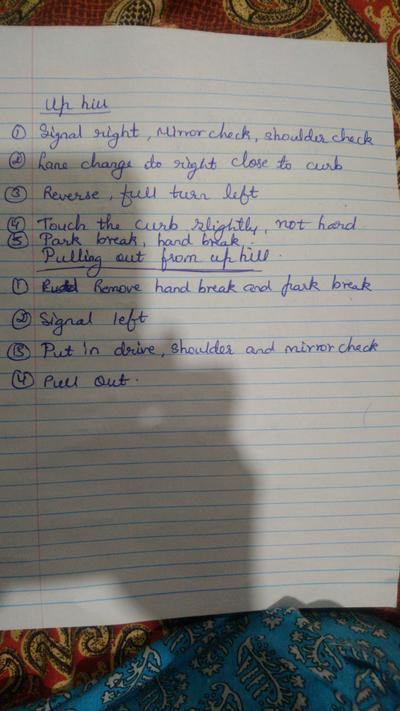 Up hill
① Signal right, Mirror check, shoulder check
② Lane change do right close to curb
③ Reverse, full turn left
④ Touch the curb slightly, not hard
⑤ Park break, hand break.
Pulling out from up hill.
① Remove hand break and park break
② Signal left
③ Put in drive, shoulder and mirror check
④ Pull out.